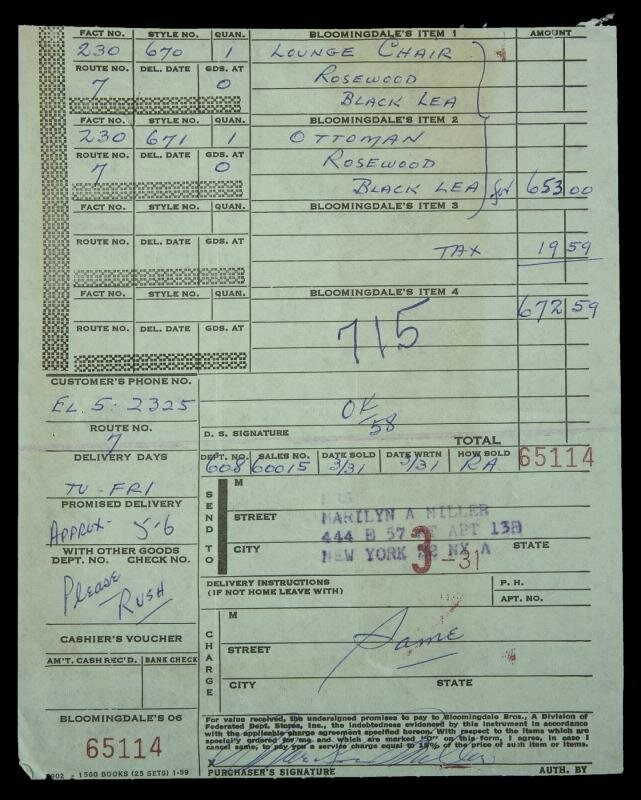 FACT NO. STYLE NO. QUAN. BLOOMINGDALE'S ITEM 1 AMOUNT
230 670 1 LOUNGE CHAIR
ROUTE NO. DEL. DATE GDS. AT ROSEWOOD
7 0 BLACK LEA
FACT NO. STYLE NO. QUAN. BLOOMINGDALE'S ITEM 2
230 671 1 OTTOMAN
ROUTE NO. DEL. DATE GDS. AT ROSEWOOD
7 0 BLACK LEA for 653 00
FACT NO. STYLE NO. QUAN. BLOOMINGDALE'S ITEM 3
ROUTE NO. DEL. DATE GDS. AT TAX 19 59
FACT NO. STYLE NO. QUAN. BLOOMINGDALE'S ITEM 4
672 59
ROUTE NO. DEL. DATE GDS. AT
715
CUSTOMER'S PHONE NO.
EL. 5: 2325
OK
58
ROUTE NO.
7
D. S. SIGNATURE TOTAL
DELIVERY DAYS
DEPT. NO. SALES NO. DATE SOLD DATE WRTN HOW SOLD
608 60015 3/31 3/31 RA 65114
TU-FRI
PROMISED DELIVERY
APPROX- 5-6
WITH OTHER GOODS
DEPT. NO. CHECK NO.
PLEASE
RUSH
SEND TO
M
STREET MARILYN A MILLER
444 E 57 ST APT 13D
CITY NEW YORK 22 NY A STATE
3-31
DELIVERY INSTRUCTIONS
(IF NOT HOME LEAVE WITH)
P. H.
APT. NO.
CHARGE
M
Same
STREET
CITY STATE
CASHIER'S VOUCHER
AM'T. CASH REC'D. BANK CHECK
BLOOMINGDALE'S 06
65114
902 - 1500 BOOKS (25 SETS) 1-59
For value received, the undersigned promises to pay to Bloomingdale Bros., A Division of
Federated Dept. Stores, Inc., the indebtedness evidenced by this instrument in accordance
with the applicable charge agreement specified hereon. With respect to the items which are
specially ordered for me and which are marked "O" on this form, I agree, in case I
cancel same, to pay you a service charge equal to 15% of the price of such item or items.
X
PURCHASER'S SIGNATURE AUTH. BY